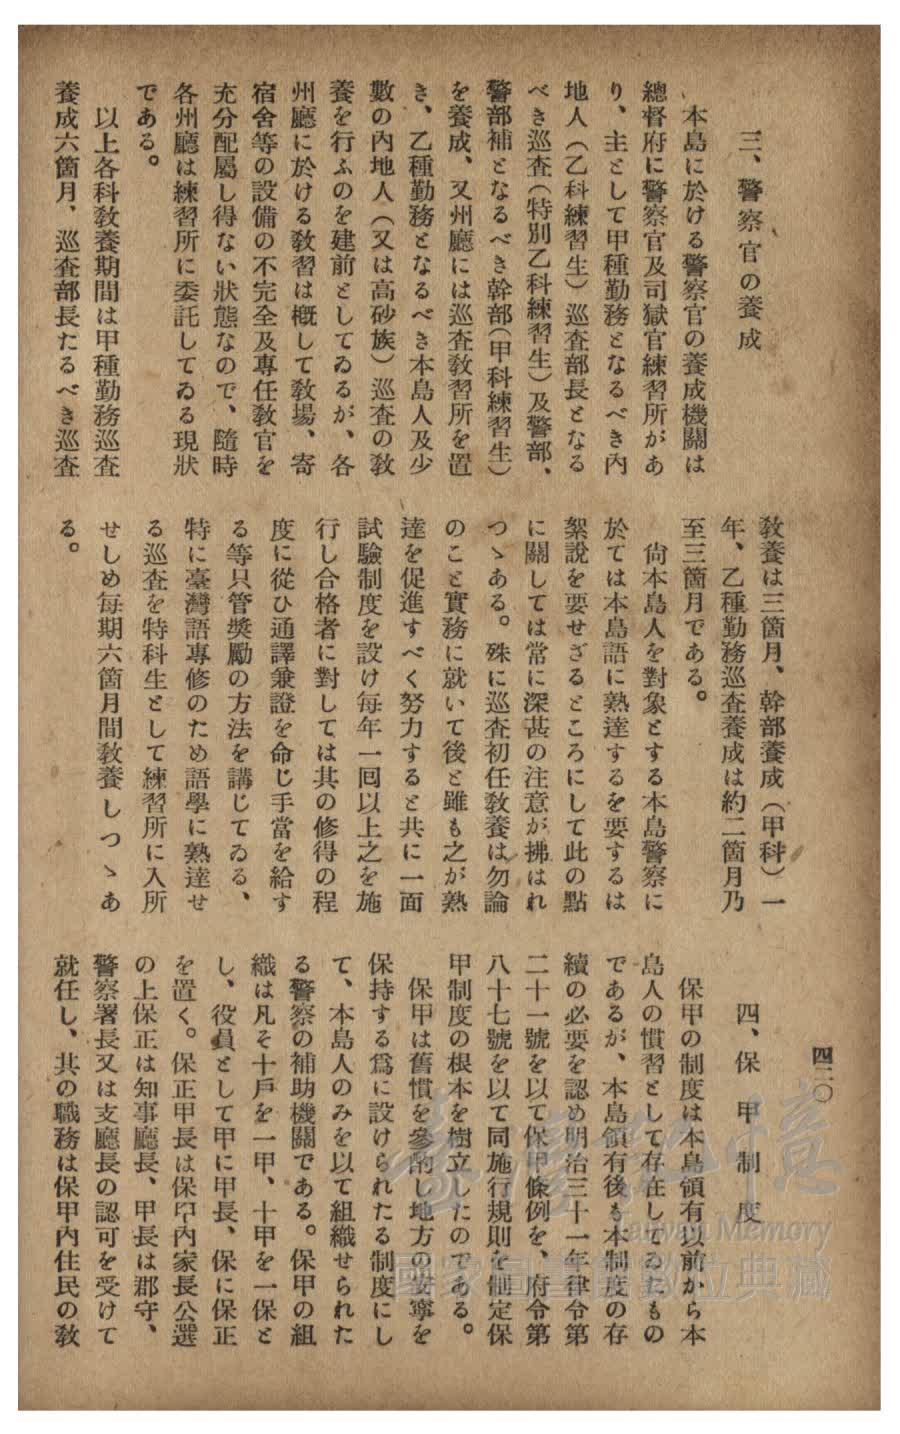 四二〇
三、警察官の養成
本島に於ける警察官の養成機關は
總督府に警察官及司獄官練習所があ
り、主として甲種勤務となるべき內
地人（乙科練習生）巡査部長となる
べき巡査（特別乙科練習生）及警部、
警部補となるべき幹部（甲科練習生）
を養成、又州廳には巡査敎習所を置
き、乙種勤務となるべき本島人及少
數の內地人（又は高砂族）巡査の敎
養を行ふのを建前としてゐるが、各
州廳に於ける敎習は槪して敎場、寄
宿舍等の設備の不完全及專任敎官を
充分配屬し得ない狀態なので、隨時
各州廳は練習所に委託してゐる現狀
である。
以上各科敎養期間は甲種勤務巡査
養成六箇月、巡査部長たるべき巡査
敎養は三箇月、幹部養成（甲科）一
年、乙種勤務巡査養成は約二箇月乃
至三箇月である。
尙本島人を對象とする本島警察に
於ては本島語に熟達するを要するは
絮說を要せざるところにして此の點
に關しては常に深甚の注意が拂はれ
つゝある。殊に巡査初任敎養は勿論
のこと實務に就いて後と雖も之が熟
達を促進すべく努力すると共に一面
試驗制度を設け每年一囘以上之を施
行し合格者に對しては其の修得の程
度に從ひ通譯兼證を命じ手當を給す
る等只管獎勵の方法を講じてゐる、
特に臺灣語專修のため語學に熟達せ
る巡査を特科生として練習所に入所
せしめ每期六箇月間敎養しつゝあ
る。
四、保甲制度
保甲の制度は本島領有以前から本
島人の慣習として存在してゐたもの
であるが、本島領有後も本制度の存
續の必要を認め明治三十一年律令第
二十一號を以て保甲條例を、府令第
八十七號を以て同施行規則を制定保
甲制度の根本を樹立したのである。
保甲は舊慣を參酌し地方の安寧を
保持する爲に設けられたる制度にし
て、本島人のみを以て組織せられた
る警察の補助機關である。保甲の組
織は凡そ十戶を一甲、十甲を一保と
し、役員として甲に甲長、保に保正
を置く。保正甲長は保甲內家長公選
の上保正は知事廳長、甲長は郡守、
警察署長又は支廳長の認可を受けて
就任し、其の職務は保甲內住民の敎
臺灣記憶
Taiwan Memory
國家圖書館數位典藏